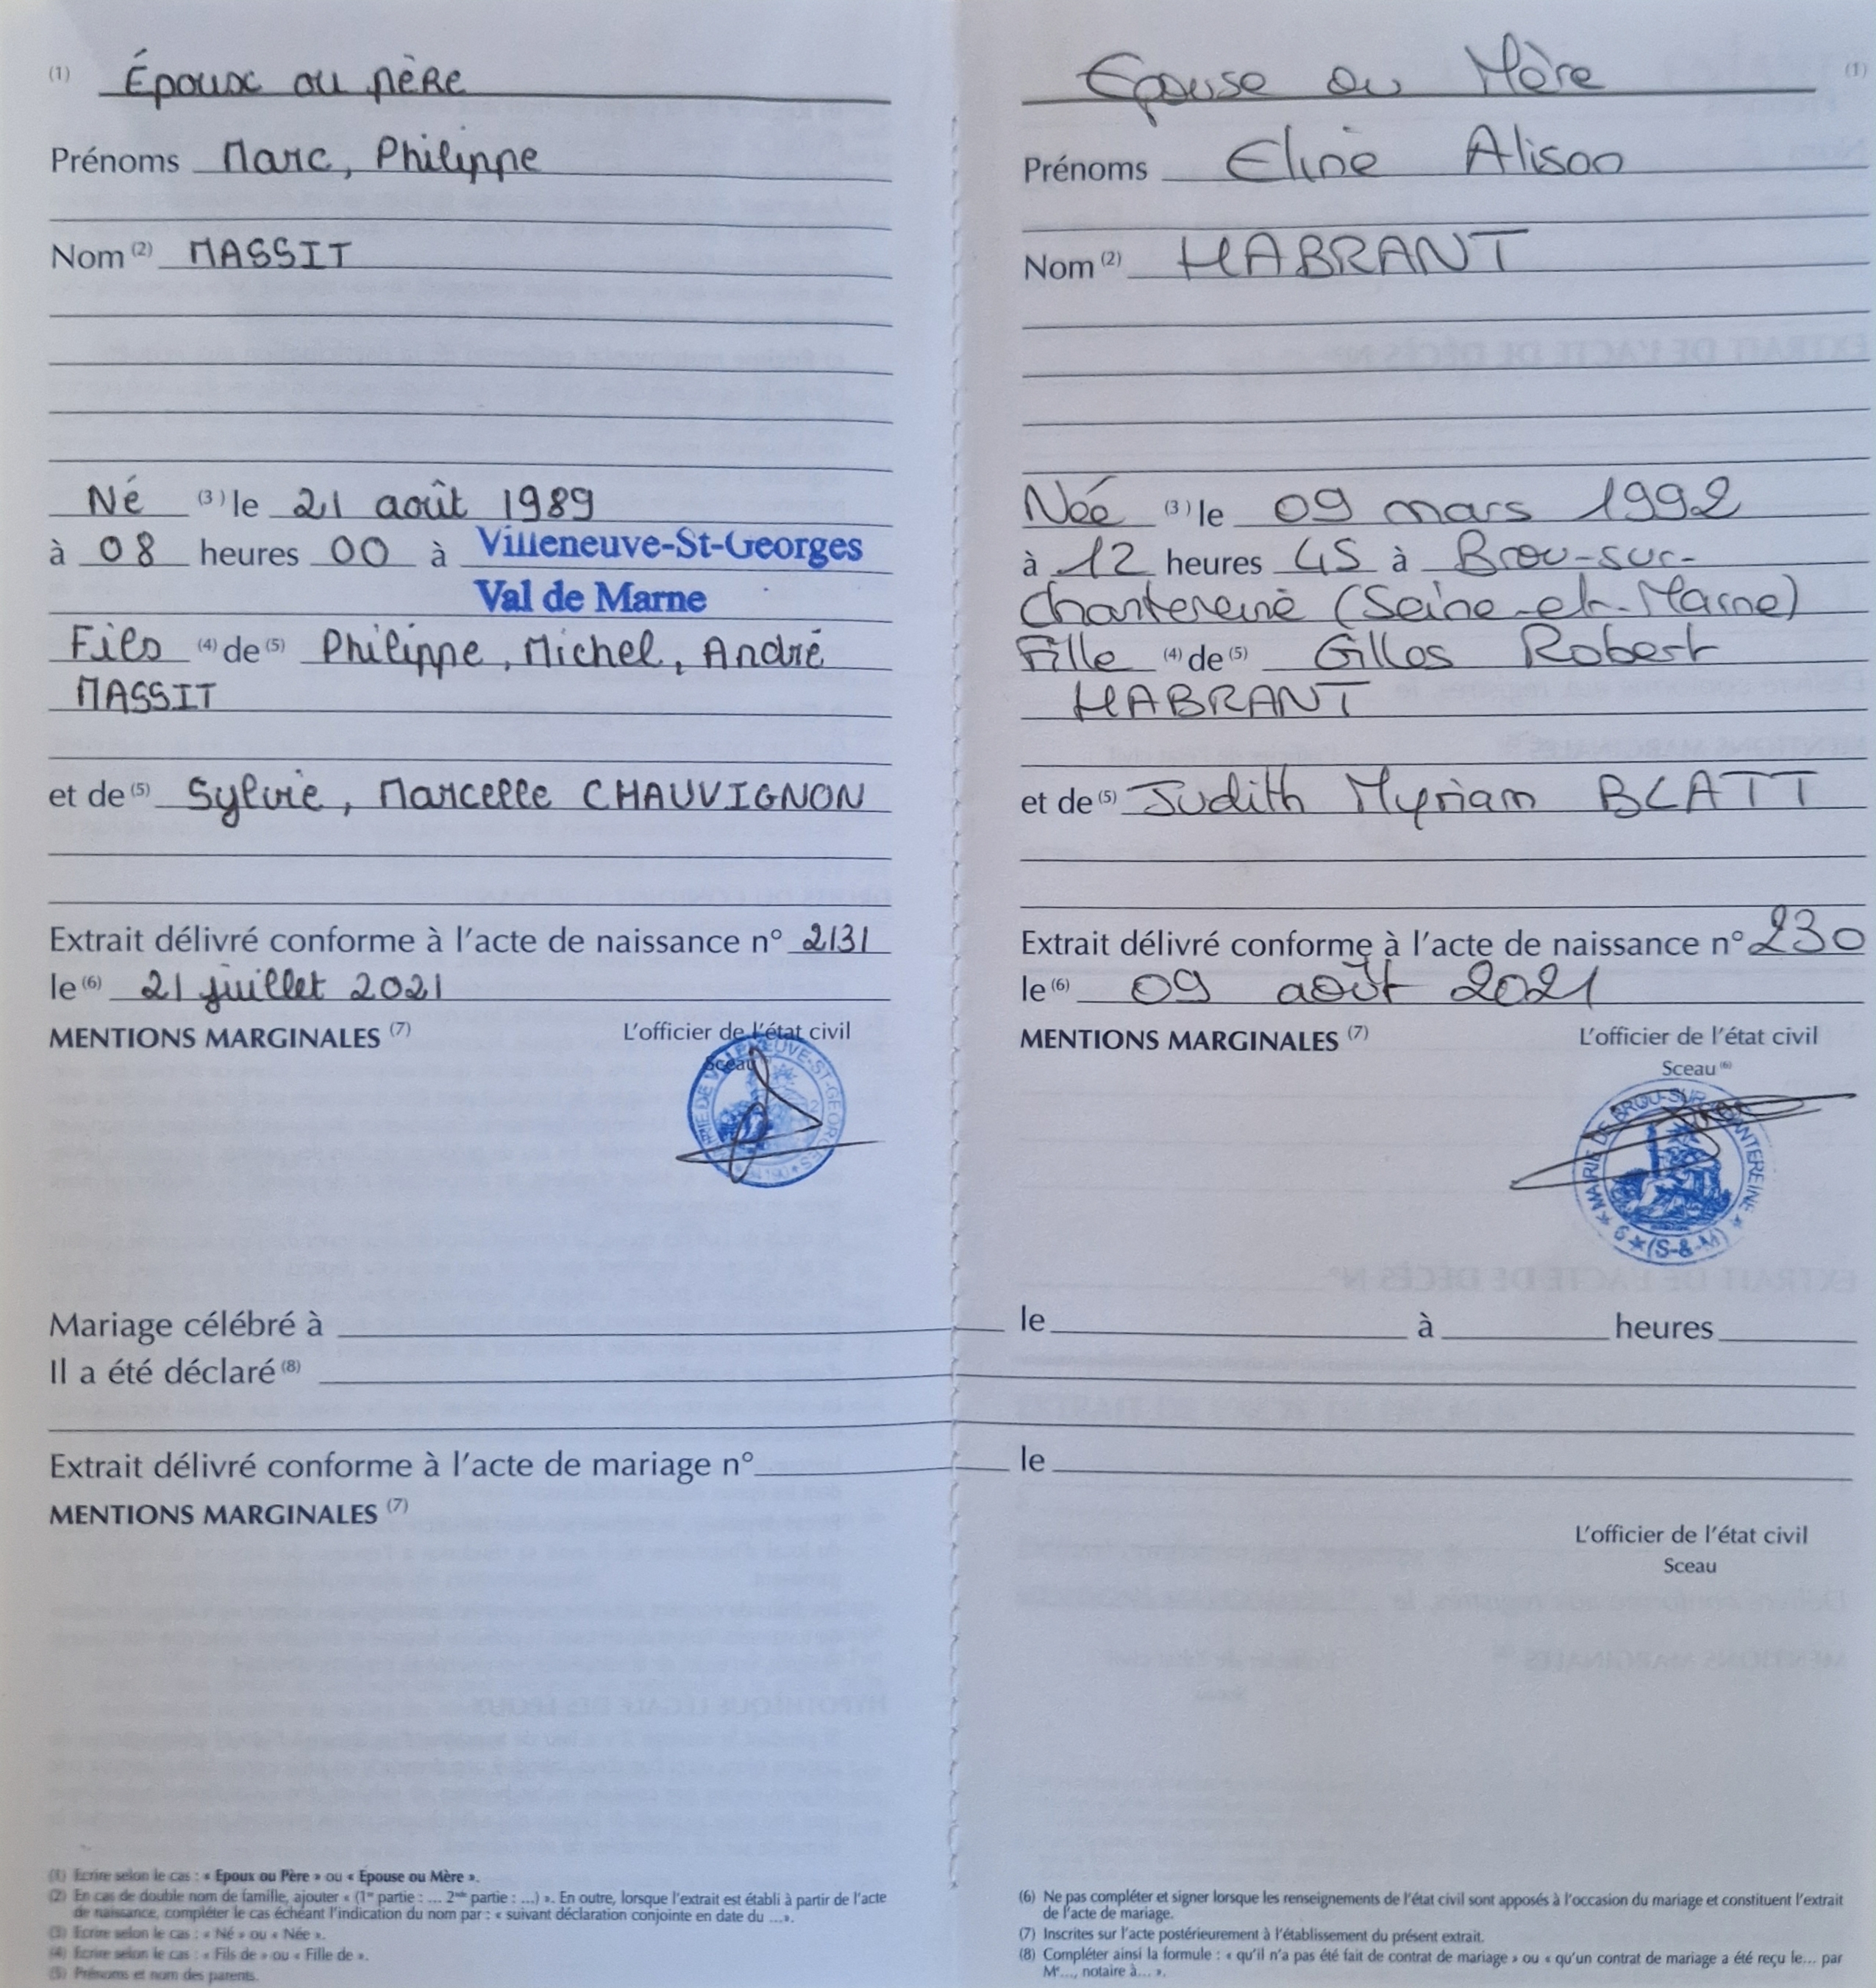 (1) Époux ou père
Prénoms Marc, Philippe
Nom (2) MASSIT
Né (3) le 21 août 1989
à 08 heures 00 à Villeneuve-St-Georges
Val de Marne
Fils (4) de (5) Philippe, Michel, André
MASSIT
et de (5) Sylvie, Marcelle CHAUVIGNON
Extrait délivré conforme à l'acte de naissance n° 2131
le (6) 21 juillet 2021
MENTIONS MARGINALES (7)
L'officier de l'état civil
Sceau
Epouse ou Mère (1)
Prénoms Eline Alison
Nom (2) HABRANT
Née (3) le 09 mars 1992
à 12 heures 45 à Brou-sur-
Chantereine (Seine-et-Marne)
Fille (4) de (5) Gilles Robert
HABRANT
et de (5) Judith Myriam BLATT
Extrait délivré conforme à l'acte de naissance n° 230
le (6) 09 août 2021
MENTIONS MARGINALES (7)
L'officier de l'état civil
Sceau (6)
MAIRIE DE BROU-SUR-CHANTEREINE
6 ★ (S-&-M) ★
Mariage célébré à le à heures
Il a été déclaré (8)
Extrait délivré conforme à l'acte de mariage n° le
MENTIONS MARGINALES (7)
L'officier de l'état civil
Sceau
(1) Ecrire selon le cas : « Epoux ou Père » ou « Epouse ou Mère ».
(2) En cas de double nom de famille, ajouter « (1re partie : ... 2nde partie : ...) ». En outre, lorsque l'extrait est établi à partir de l'acte
de naissance, compléter le cas échéant l'indication du nom par : « suivant déclaration conjointe en date du ...».
(3) Ecrire selon le cas : « Né » ou « Née ».
(4) Ecrire selon le cas : « Fils de » ou « Fille de ».
(5) Prénoms et nom des parents.
(6) Ne pas compléter et signer lorsque les renseignements de l'état civil sont apposés à l'occasion du mariage et constituent l'extrait
de l'acte de mariage.
(7) Inscrites sur l'acte postérieurement à l'établissement du présent extrait.
(8) Compléter ainsi la formule : « qu'il n'a pas été fait de contrat de mariage » ou « qu'un contrat de mariage a été reçu le... par
Me..., notaire à... ».